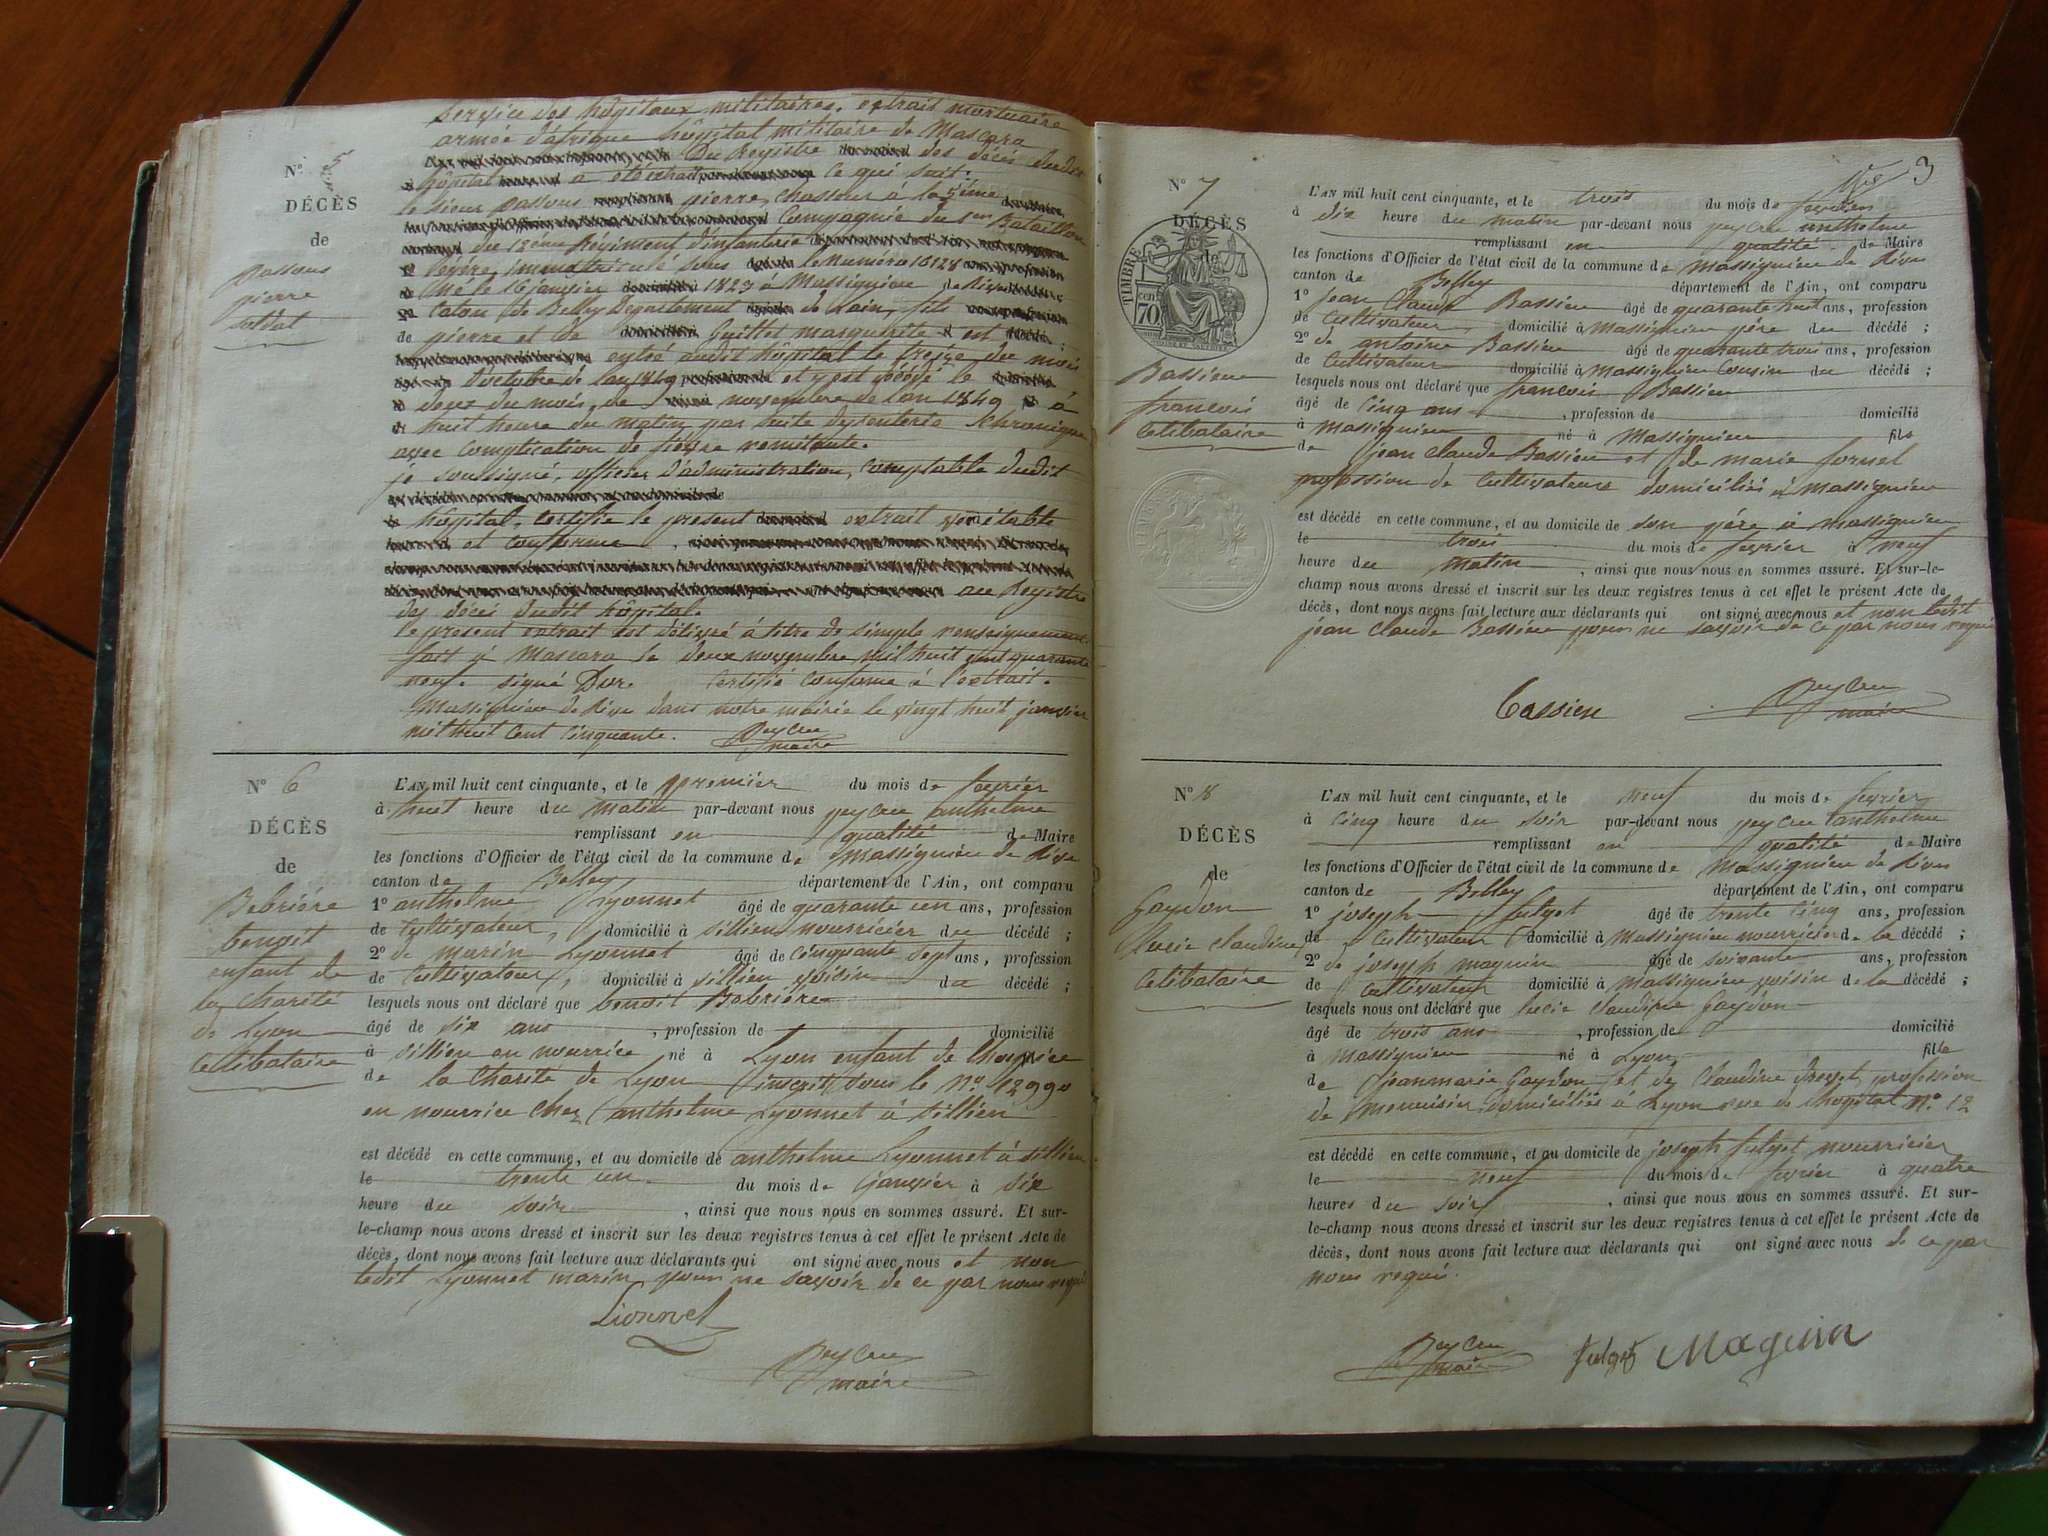 service des hôpitaux militaires. extrait mortuaire
armée d'afrique hôpital militaire de Mascara
N.º 5
Du Registre des décès dudit
hôpital a été extrait ce qui suit.
DÉCÈS
le sieur passous pierre, chasseur à la 5ème
Compagnie du 1er Bataillon
de
du 12ème Régiment d'infanterie
passous
légère, immatriculé sous le Numéro 16128
pierre
Né le 16 janvier 1823 à Massignieu de Rive
soldat
Caton de Belley Département de Lain, fils
de pierre et de Guillet marguerite est
entré audit hôpital le treize du mois
Doctobre de lan 1849 et y est décédé le
deux du mois de novembre de lan 1849 à
huit heure du matin par suite dysenterie Schronique
avec complication de fièvre remitante.
je soussigné, officier d'administration, comptable dudit
hôpital, certifie le present extrait véritable
et conforme
au Registre
des décès dudit hôpital.
le present extrait est délivré à titre de simple renseignement
fait à Mascara le deux novembre mil huit cent quarante
neuf. signé Dore certifié conforme à l'extrait.
Massignieu de Rive dans notre mairie le vingt huit janvier
mil huit cent cinquante. Peycru
maire
N.º 6
DÉCÈS
de
Bebriére
benoit
enfant de
la Charité
de Lyon
Cellibataire
L'AN mil huit cent cinquante, et le premier du mois de fevrier
à huit heure du matin par-devant nous peycru anthelme
remplissant en qualité de Maire
les fonctions d'Officier de l'état civil de la commune de Massignieu de Rive
canton de Belley département de l'Ain, ont comparu
1º anthelme Lyonnet âgé de quarante un ans, profession
de Cultivateur, domicilié à Sillieu nourricier du décédé ;
2º de marin Lyonnet âgé de cinquante sept ans, profession
de Cultivateur, domicilié à Sillieu voisin du décédé ;
lesquels nous ont déclaré que benoit Bebriére
âgé de six ans , profession de domicilié
à Sillieu en nourrice né à Lyon enfant de l'hospice
de la Charité de Lyon inscrit sous le Nº 12990
en nourrice chez anthelme Lyonnet à Sillieu
est décédé en cette commune, et au domicile de anthelme Lyonnet à Sillieu
le trente un du mois de janvier à six
heure du soir , ainsi que nous nous en sommes assuré. Et sur-
le-champ nous avons dressé et inscrit sur les deux registres tenus à cet effet le présent Acte de
décès, dont nous avons fait lecture aux déclarants qui ont signé avec nous et non
ledit Lyonnet marin pour ne savoir de ce par nous requis
Lionnet
Peycru
maire
3
N.º 7
DÉCÈS
de
TIMBRE
70
cen
Bassieu
francois
Celibataire
L'AN mil huit cent cinquante, et le trois du mois de fevrier
à dix heure du matin par-devant nous peycru anthelme
remplissant en qualité de Maire
les fonctions d'Officier de l'état civil de la commune de Massignieu de Rive
canton de Belley département de l'Ain, ont comparu
1º jean Claude Bassieu âgé de quarante huit ans, profession
de Cultivateur, domicilié à Massignieu père du décédé ;
2º de antoine Bassieu âgé de quarante trois ans, profession
de Cultivateur domicilié à Massignieu Cousin du décédé ;
lesquels nous ont déclaré que francois Bassieu
âgé de cinq ans , profession de domicilié
à Massignieu né à Massignieu fils
de jean Claude Bassieu et de marie fornel
profession de Cultivateurs domiciliés à Massignieu
est décédé en cette commune, et au domicile de son père à Massignieu
le trois du mois de fevrier à neuf
heure du matin , ainsi que nous nous en sommes assuré. Et sur-le-
champ nous avons dressé et inscrit sur les deux registres tenus à cet effet le présent Acte de
décès, dont nous avons fait lecture aux déclarants qui ont signé avec nous et non ledit
jean Claude Bassieu pour ne savoir de ce par nous requis
Bassieu Peycru
maire
N.º 8
DÉCÈS
de
Gaydon
lucie claudine
Celibataire
L'AN mil huit cent cinquante, et le neuf du mois de fevrier
à cinq heure du soir par-devant nous peycru anthelme
remplissant en qualité de Maire
les fonctions d'Officier de l'état civil de la commune de Massignieu de Rives
canton de Belley département de l'Ain, ont comparu
1º joseph fulget âgé de trente cinq ans, profession
de Cultivateur domicilié à Massignieu nourricier de la décédé ;
2º de joseph maguin âgé de soixante ans, profession
de Cultivateur domicilié à Massignieu voisin de la décédé ;
lesquels nous ont déclaré que lucie claudine Gaydon
âgé de trois ans , profession de domicilié
à Massignieu né à Lyon fille
de jeanmarie Gaydon et de Claudine Drevet, profession
de menuisier domiciliés à Lyon rue de l'hopital Nº 12
est décédé en cette commune, et au domicile de joseph fulget nourricier
le neuf du mois de fevrier à quatre
heures du soir , ainsi que nous nous en sommes assuré. Et sur-
le-champ nous avons dressé et inscrit sur les deux registres tenus à cet effet le présent Acte de
décès, dont nous avons fait lecture aux déclarants qui ont signé avec nous de ce par
nous requis.
Peycru fulget Maguin
maire